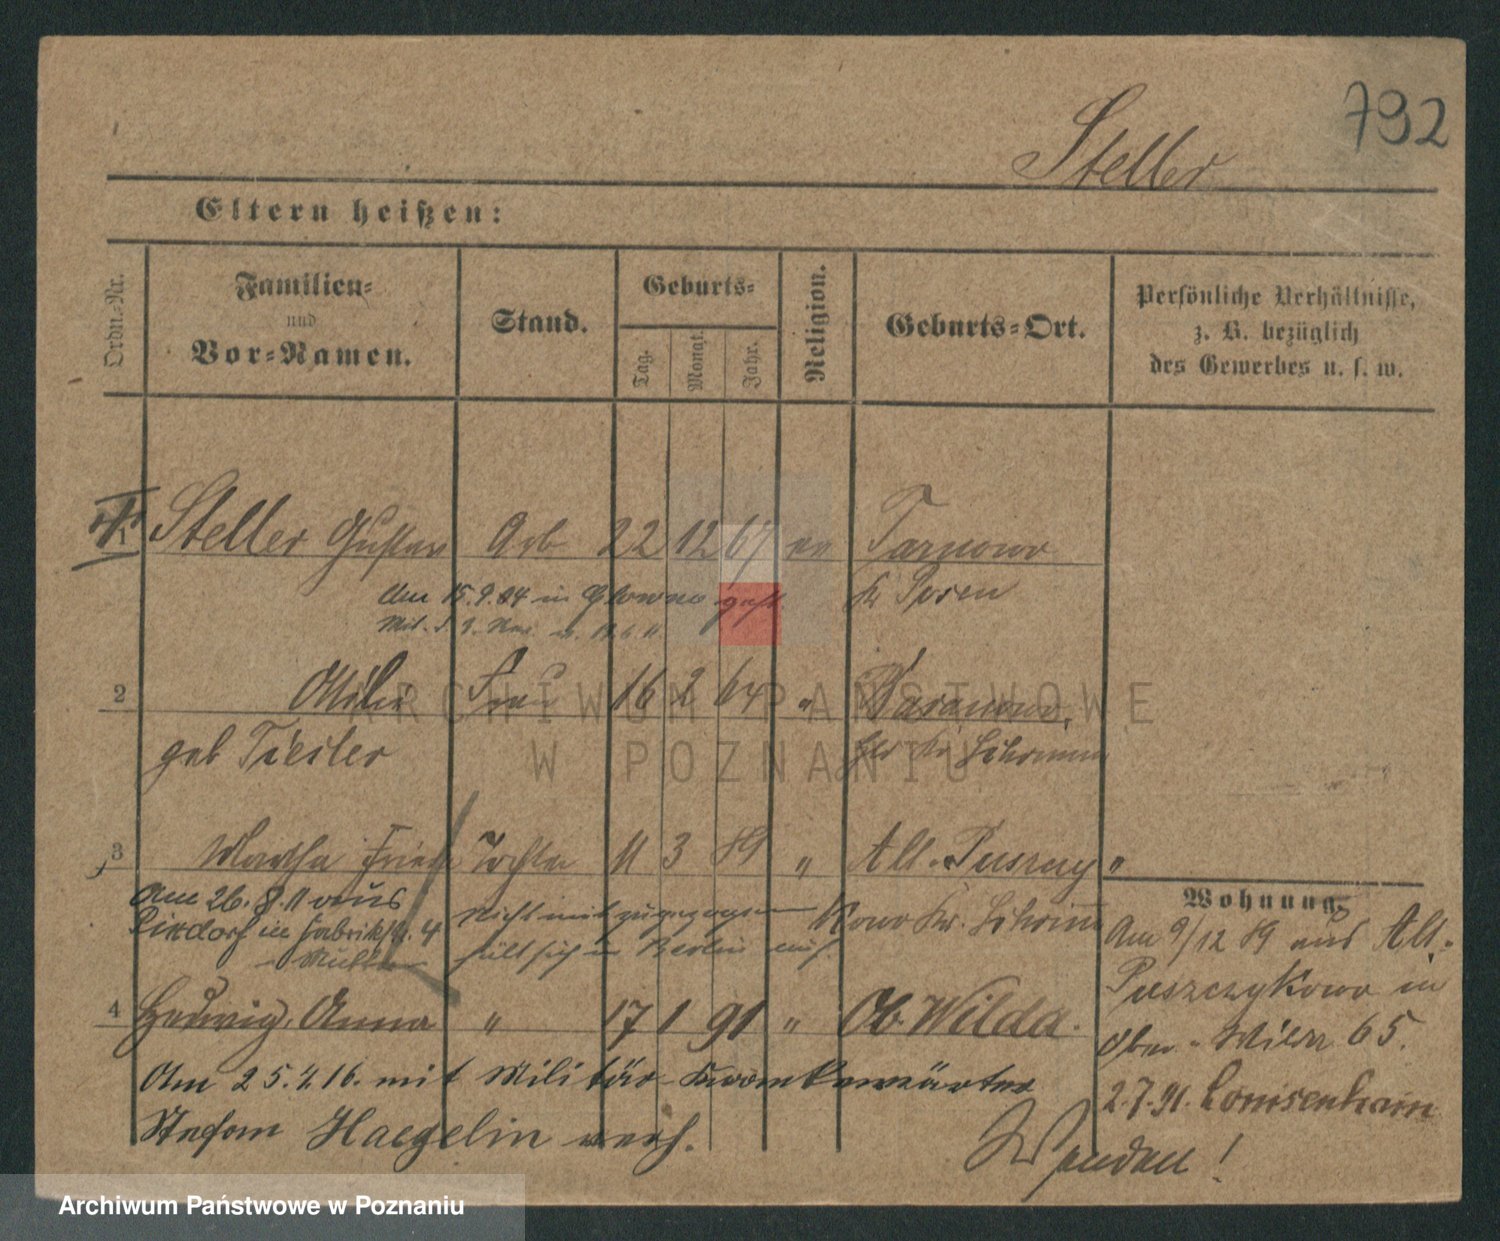 792
Steller
Eltern heißen:
Ordn.-Nr.
Familien-
und
Vor-Namen.
Stand.
Geburts-
Tag.
Monat.
Jahr.
Religion.
Geburts-Ort.
Persönliche Verhältnisse,
z. B. bezüglich
des Gewerbes u. s. w.
1 Steller Gustav Arb 22 12 67 ev Tarnowo
Am 15.9.04 in Glowno gest.
Kr Posen
2 Frau 16 2 64 "
geb Kr Schrimm
ARCHIWUM PAŃSTWOWE
W POZNANIU
3 Martha Tochter 11 3 89 " Alt-Puszczy "
kowo Kr. Schrimm
Am 26.8.11 aus
Rixdorf in Fabrikstr. 4
nicht mit zugezogen
hält sich in Berlin auf.
4 Hedwig, Anna " 17 1 91 " Ob. Wilda.
Am 25.4.16. mit Militär-Krankenwärter
Stefan Haegelin verh.
Wohnung
Am 9/12 89 aus Alt-
Puszczykowo in
Ober-Wilda 65.
2.7.91. Louisenhain
Wenden!
Archiwum Państwowe w Poznaniu